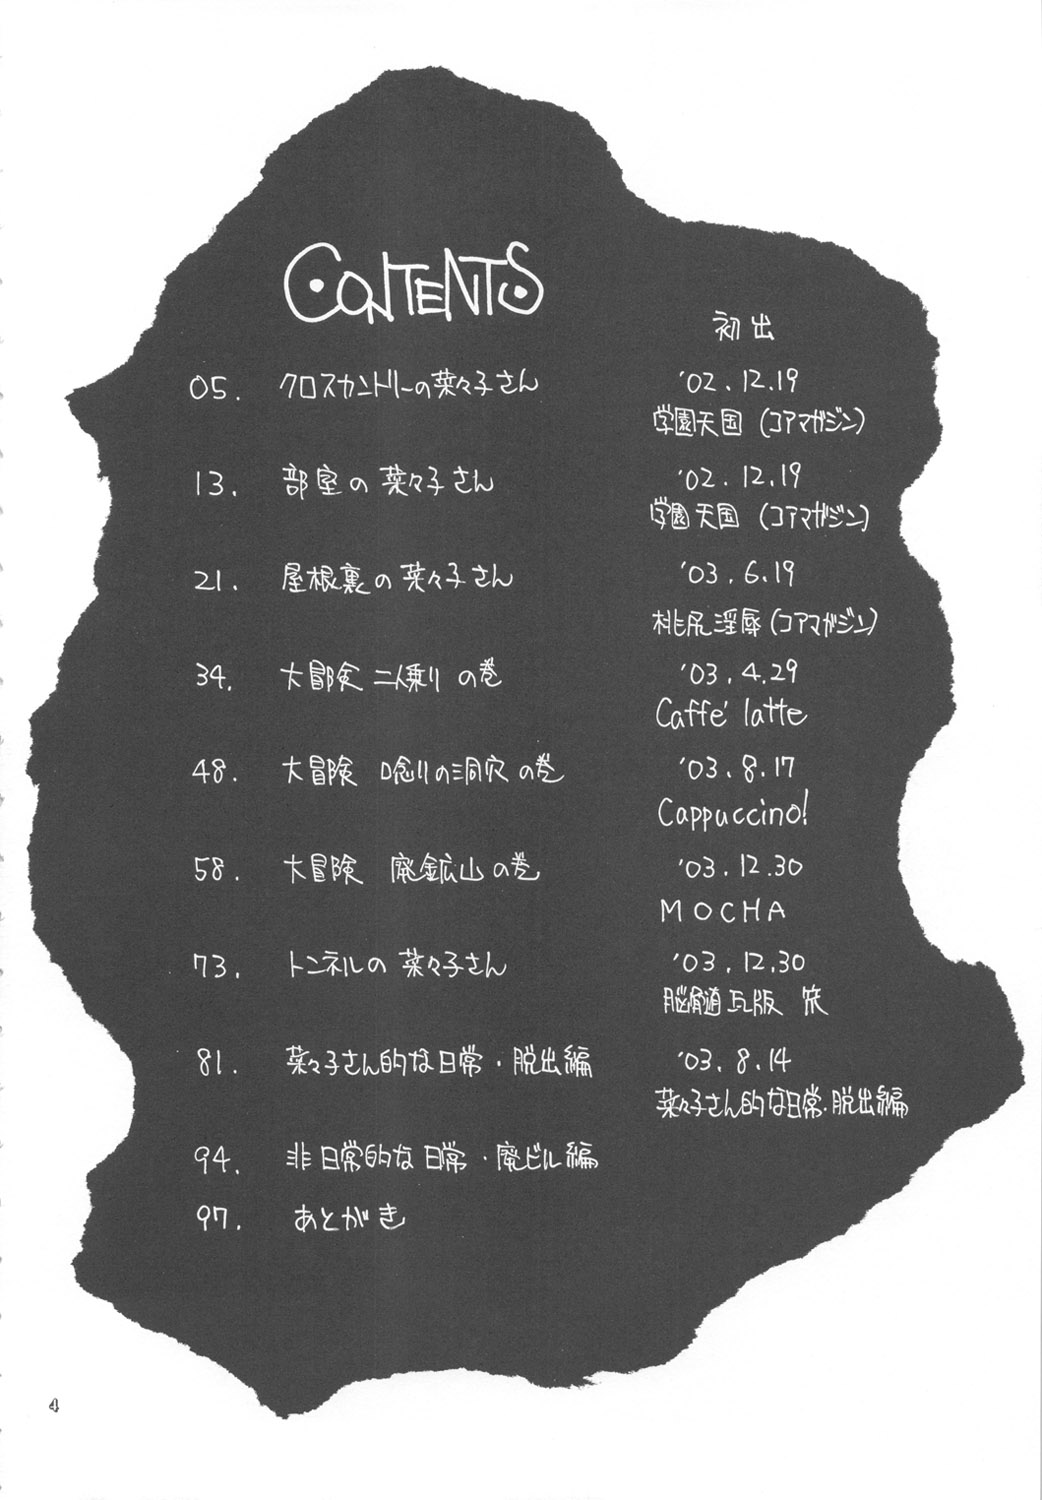 CONTENTS
初出
05. クロスカントリーの菜々子さん '02.12.19
学園天国 (コアマガジン)
13. 部室の菜々子さん '02.12.19
学園天国 (コアマガジン)
21. 屋根裏の菜々子さん '03.6.19
桃尻淫辱 (コアマガジン)
34. 大冒険 二人乗り の巻 '03.4.29
Caffe' latte
48. 大冒険 唸りの洞穴 の巻 '03.8.17
Cappuccino!
58. 大冒険 廃鉱山 の巻 '03.12.30
MOCHA
73. トンネルの菜々子さん '03.12.30
脳髄瓦版
81. 菜々子さん的な日常・脱出編 '03.8.14
菜々子さん的な日常・脱出編
94. 非日常的な日常・廃ビル編
97. あとがき
4